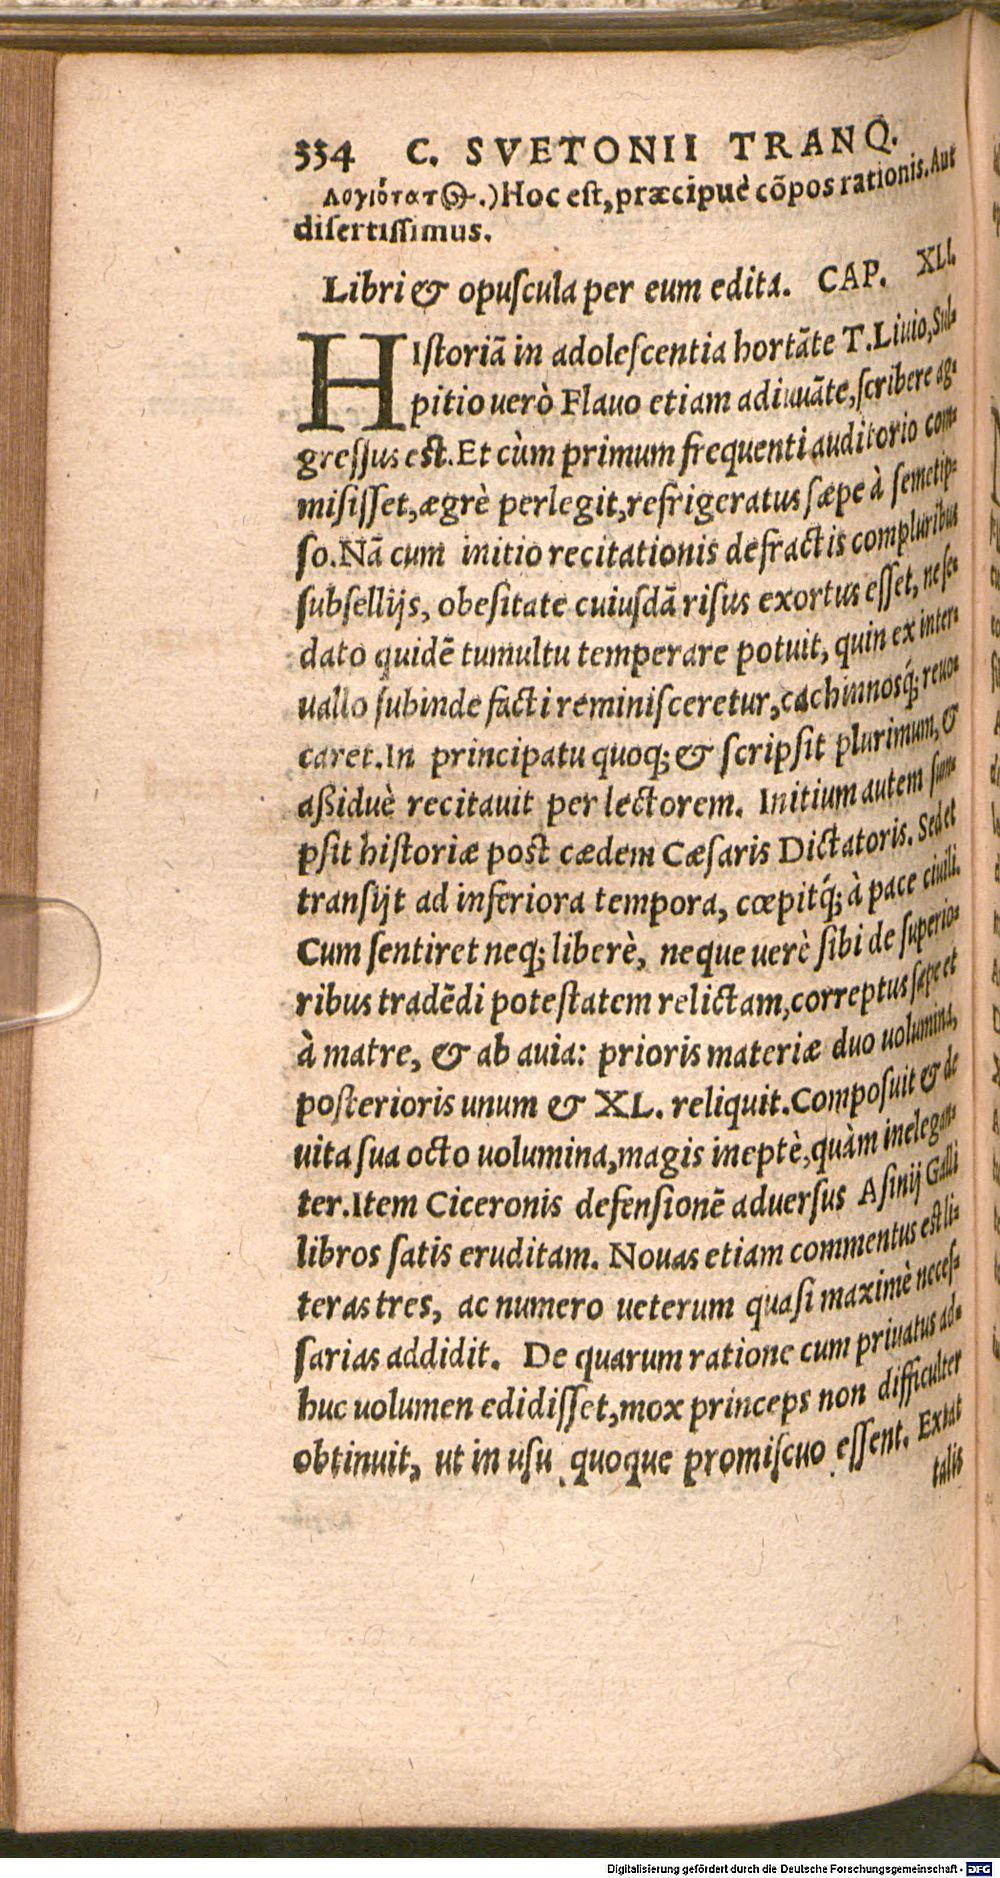 334 C. SVETONII TRANQ.
Λογιότατ⊙-.) Hoc eſt, præcipuè cõpos rationis. Aut
diſertiſſimus.
Libri & opuſcula per eum edita. CAP. XLI.
HIſtoriã in adoleſcentia hortãte T. Liuio, Sul-
pitio uerò Flauo etiam adiuuãte, ſcribere ag-
greſſus eſt. Et cùm primum frequenti auditorio com-
miſiſſet, ægrè perlegit, refrigeratus ſæpe à ſemetip-
ſo. Nã cum initio recitationis defractis compluribus
ſubſellijs, obeſitate cuiuſdã riſus exortus eſſet, ne ſe-
dato quidẽ tumultu temperare potuit, quin ex inter-
uallo ſubinde facti reminiſceretur, cachinnosq́; reuo-
caret. In principatu quoq; & ſcripſit plurimum, &
aßiduè recitauit per lectorem. Initium autem ſum-
pſit hiſtoriæ poſt cædem Cæſaris Dictatoris. Sed et
tranſijt ad inferiora tempora, cœpitq́; à pace ciuili.
Cum ſentiret neq; liberè, neque uerè ſibi de ſuperio-
ribus tradẽdi poteſtatem relictam, correptus ſæpe et
à matre, & ab auia: prioris materiæ duo uolumina,
poſterioris unum & XL. reliquit. Compoſuit & de
uita ſua octo uolumina, magis ineptè, quàm inelegan-
ter. Item Ciceronis defenſionẽ aduerſus Aſinij Galli
libros ſatis eruditam. Nouas etiam commentus eſt li-
teras tres, ac numero ueterum quaſi maximè neceſ-
ſarias addidit. De quarum ratione cum priuatus ad-
huc uolumen edidiſſet, mox princeps non difficulter
obtinuit, ut in uſu quoque promiſcuo eſſent. Extat
talis
Digitalisierung gefördert durch die Deutsche Forschungsgemeinschaft - DFG